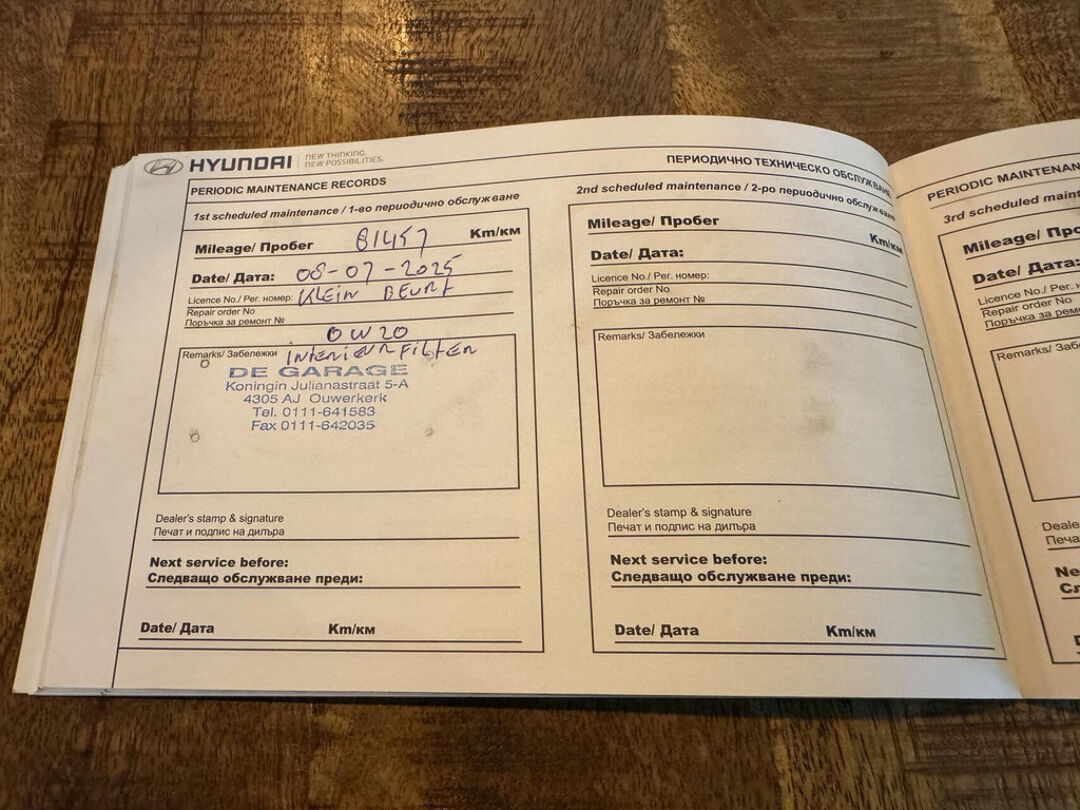 HYUNDAI NEW THINKING. NEW POSSIBILITIES.
PERIODIC MAINTENANCE RECORDS
ПЕРИОДИЧНО ТЕХНИЧЕСКО ОБСЛУЖВАНЕ
1st scheduled maintenance / 1-во периодично обслужване
Mileage/ Пробег 81457 Km/км
Date/ Дата: 08-07-2025
Licence No./ Рег. номер: KLEIN BEURT
Repair order No
Поръчка за ремонт №
0W20
Remarks/ Забележки INTERIEURFILTER
DE GARAGE
Koningin Julianastraat 5-A
4305 AJ Ouwerkerk
Tel. 0111-641583
Fax 0111-642035
Dealer's stamp & signature
Печат и подпис на дилъра
Next service before:
Следващо обслужване преди:
Date/ Дата Km/км
2nd scheduled maintenance / 2-ро периодично обслужване
Mileage/ Пробег Km/км
Date/ Дата:
Licence No./ Рег. номер:
Repair order No
Поръчка за ремонт №
Remarks/ Забележки
Dealer's stamp & signature
Печат и подпис на дилъра
Next service before:
Следващо обслужване преди:
Date/ Дата Km/км
PERIODIC MAINTENAN
3rd scheduled maint
Mileage/ Про
Date/ Дата:
Licence No./ Рег. н
Repair order No
Поръчка за рем
Remarks/ Забе
Deale
Печа
Ne
Сл